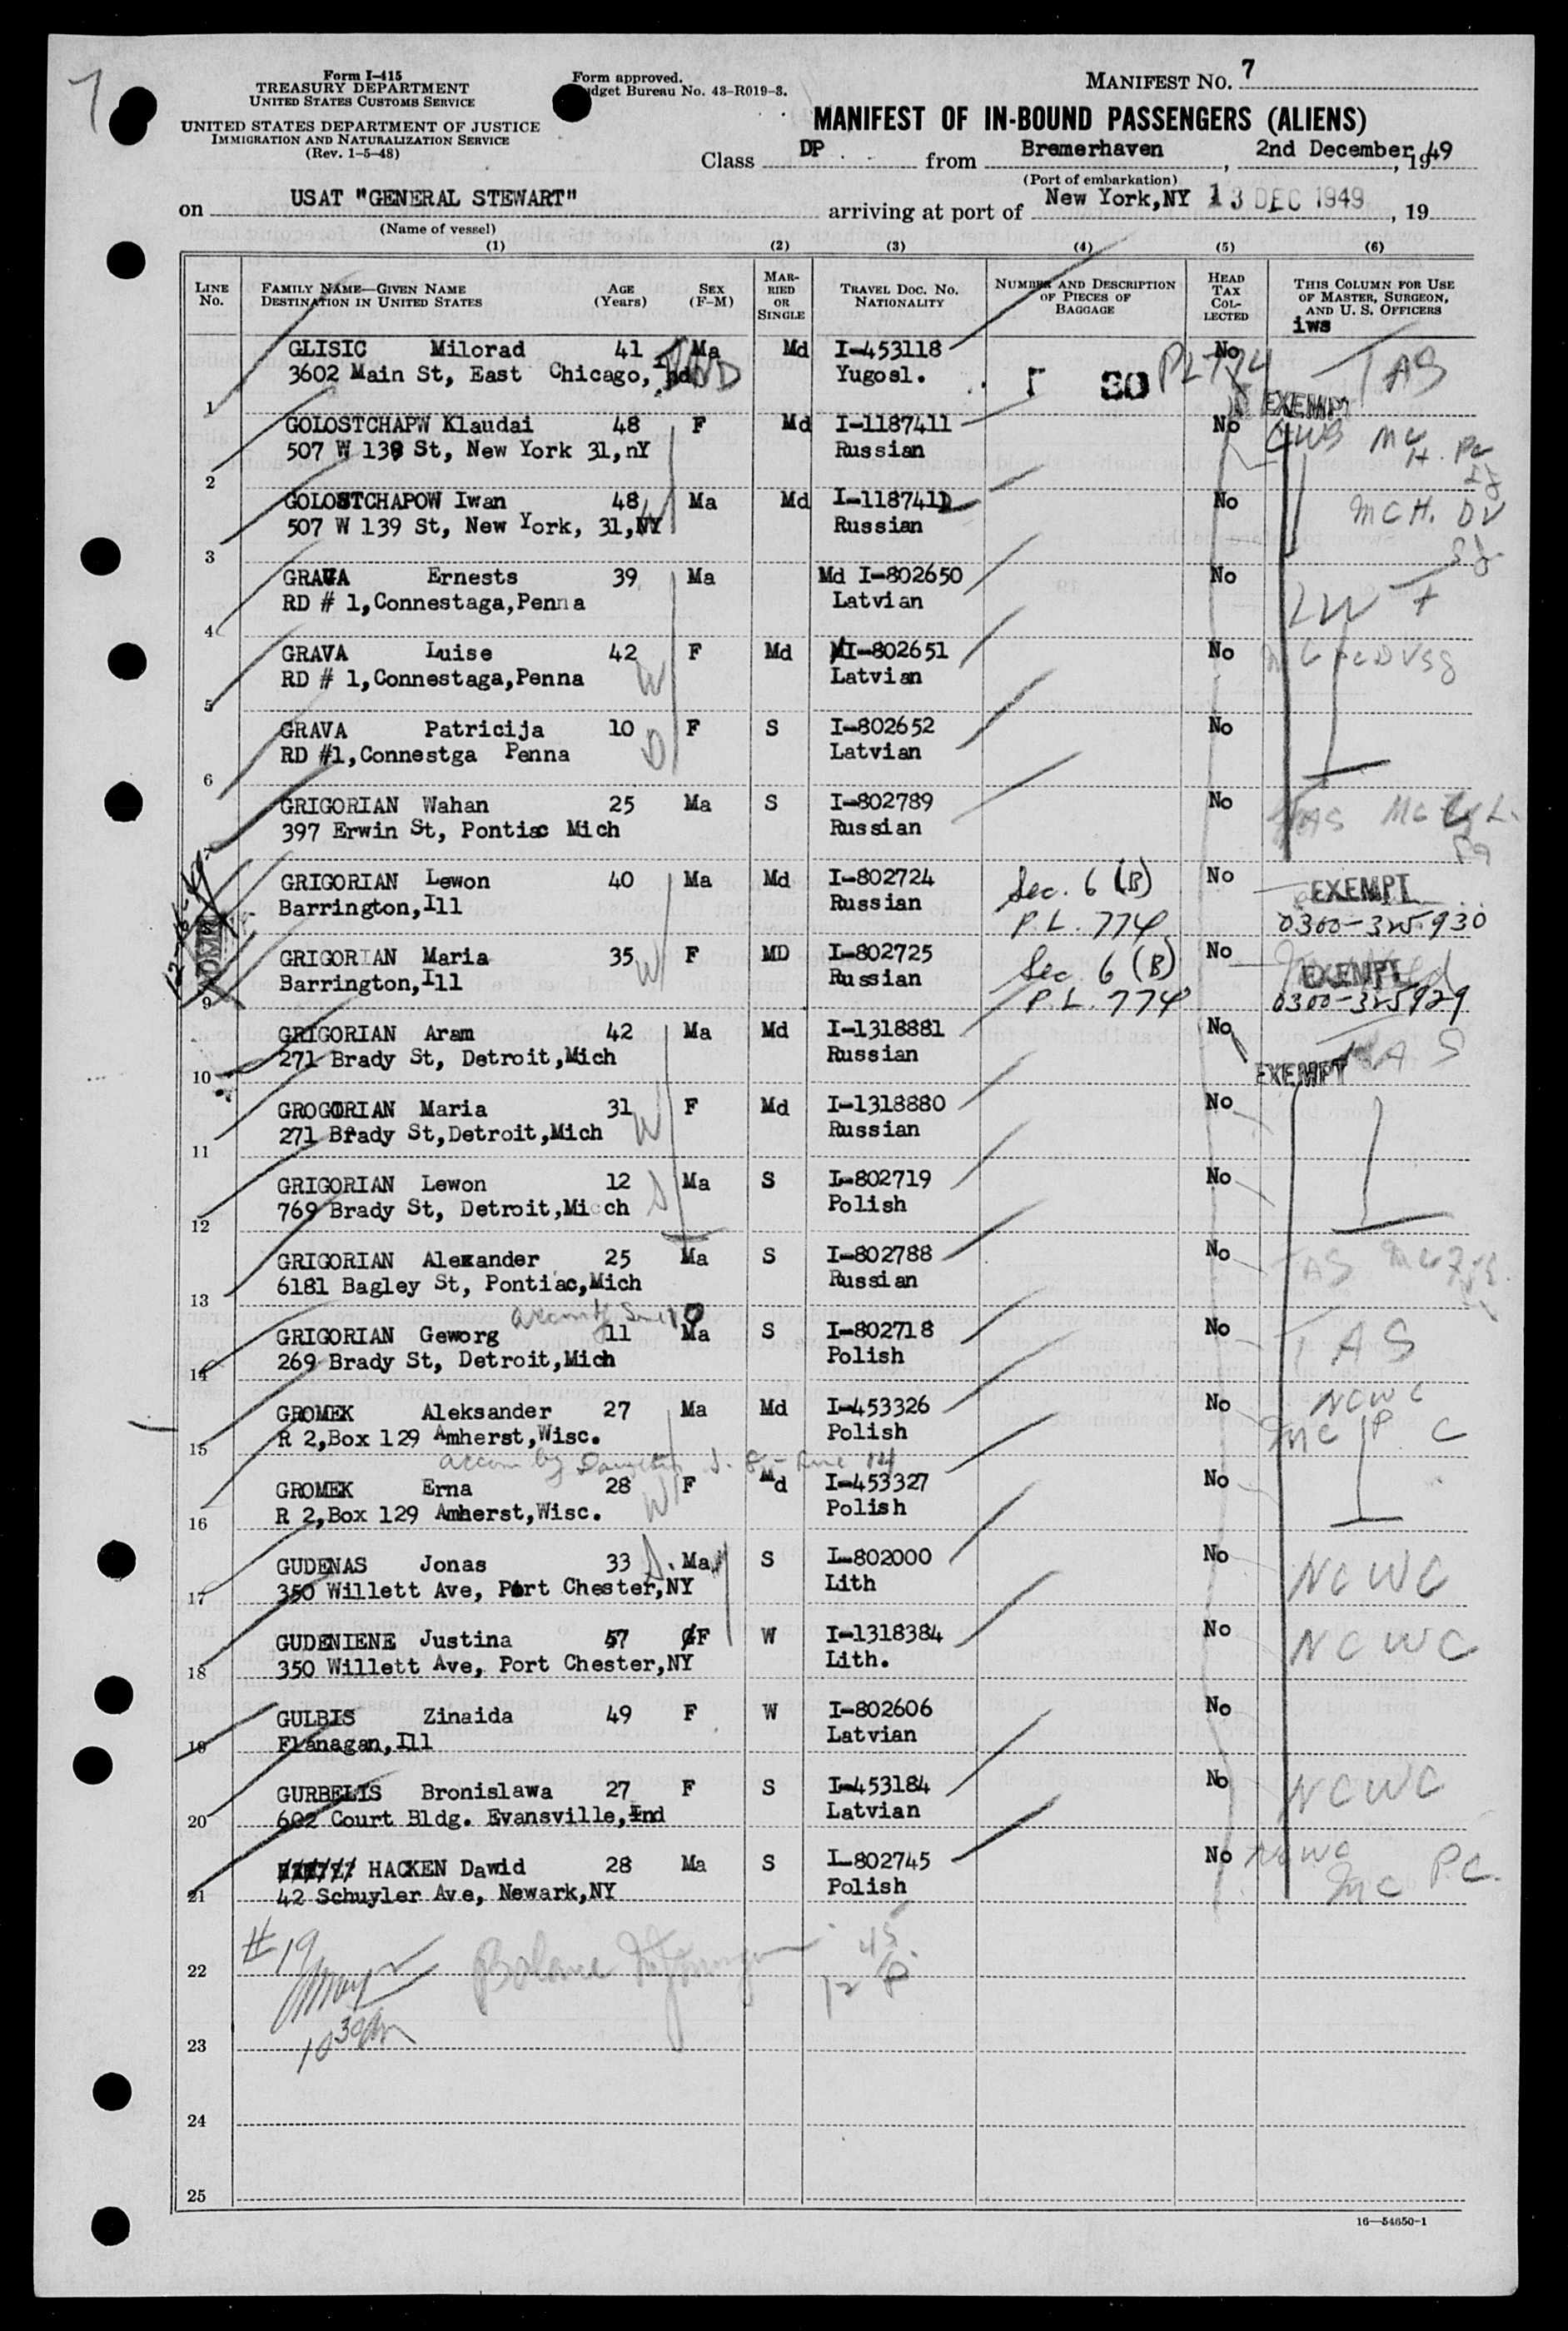 7
Form I-415
TREASURY DEPARTMENT
UNITED STATES CUSTOMS SERVICE
UNITED STATES DEPARTMENT OF JUSTICE
IMMIGRATION AND NATURALIZATION SERVICE
(Rev. 1-5-48)
Form approved.
Budget Bureau No. 43-R019-3.
MANIFEST NO. 7
MANIFEST OF IN-BOUND PASSENGERS (ALIENS)
Class DP from Bremerhaven, 2nd December, 1949
(Port of embarkation)
on USAT "GENERAL STEWART" arriving at port of New York,NY 13 DEC 1949, 19
(Name of vessel)
(1) (2) (3) (4) (5) (6)
LINE No. FAMILY NAME—GIVEN NAME DESTINATION IN UNITED STATES AGE (Years) SEX (F-M) MARRIED OR SINGLE TRAVEL DOC. NO. NATIONALITY NUMBER AND DESCRIPTION OF PIECES OF BAGGAGE HEAD TAX COLLECTED THIS COLUMN FOR USE OF MASTER, SURGEON, AND U. S. OFFICERS
iws
GLISIC Milorad 41 Ma Md I-453118 No PL 774 TAS
1 3602 Main St, East Chicago, Ind Yugosl. 80 EXEMPT
GOLOSTCHAPW Klaudai 48 F Md I-1187411 No
2 507 W 139 St, New York 31,nY Russian
GOLOSTCHAPOW Iwan 48 Ma Md I-1187412 No
3 507 W 139 St, New York, 31,NY Russian
GRAVA Ernests 39 Ma Md I-802650 No
4 RD # 1,Connestaga,Penna Latvian
GRAVA Luise 42 F Md I-802651 No
5 RD # 1,Connestaga,Penna W Latvian
GRAVA Patricija 10 F S I-802652 No
6 RD #1,Connestga Penna D Latvian
GRIGORIAN Wahan 25 Ma S I-802789 No TAS
7 397 Erwin St, Pontiac Mich Russian
GRIGORIAN Lewon 40 Ma Md I-802724 Sec. 6 (B) No EXEMPT
Barrington,Ill Russian P.L. 774 0300-325930
GRIGORIAN Maria 35 W F MD I-802725 Sec. 6 (B) No EXEMPT
9 Barrington,Ill Russian P.L. 774 0300-325929
GRIGORIAN Aram 42 Ma Md I-1318881 No TAS
10 271 Brady St, Detroit,Mich Russian EXEMPT
GROGORIAN Maria 31 W F Md I-1318880 No
11 271 Brady St,Detroit,Mich Russian
GRIGORIAN Lewon 12 S Ma S I-802719 No
12 769 Brady St, Detroit,Mi ch Polish
GRIGORIAN Alexander 25 Ma S I-802788 No TAS
13 6181 Bagley St, Pontiac,Mich Russian
GRIGORIAN Geworg 11 Ma S I-802718 No TAS
14 269 Brady St, Detroit,Mich Polish
GROMEK Aleksander 27 Ma Md I-453326 No NCWC
15 R 2,Box 129 Amherst,Wisc. Polish
GROMEK Erna 28 W F Md I-453327 No
16 R 2,Box 129 Amherst,Wisc. Polish
GUDENAS Jonas 33 S. Ma S I-802000 No NCWC
17 350 Willett Ave, Port Chester,NY Lith
GUDENIENE Justina 57 F W I-1318384 No NCWC
18 350 Willett Ave, Port Chester,NY Lith.
GULBIS Zinaida 49 F W I-802606 No
19 Flanagan,Ill Latvian
GURBELIS Bronislawa 27 F S I-453184 No NCWC
20 602 Court Bldg. Evansville,Ind Latvian
HACKEN Dawid 28 Ma S I-802745 No NCWC
21 42 Schuyler Ave, Newark,NY Polish P.C.
#19
22
23
24
25
16—54650-1